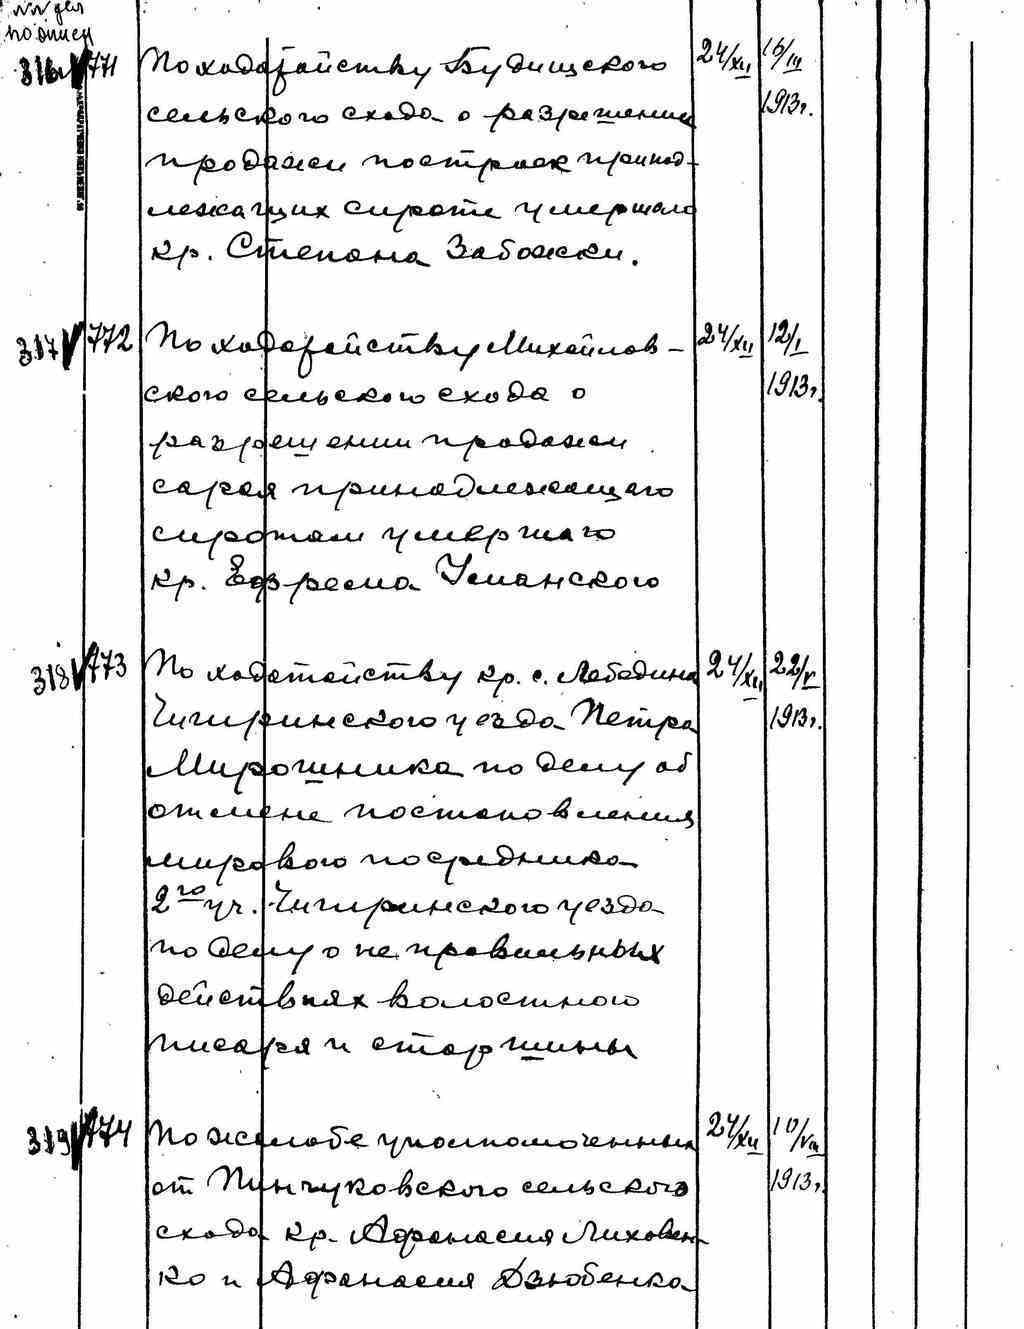 №№ дел
по описи
316 771 По ходатайству Будищского 24/XII 16/III
сельского схода о разрешении 1913г.
продажи построек принад-
лежащих сироте умершего
кр. Степана Забожки.
317 772 По ходатайству Михайлов- 24/XII 12/I
ского сельского схода о 1913г.
разрешении продажи
сарая принадлежащего
сиротам умершаго
кр. Ефрема Уманского
318 773 По ходатайству кр. с. Лебедина 24/XII 22/V
Чигиринского уезда Петра 1913г.
Мирошника по делу об
отмене постановления
мирового посредника
2го уч. Чигиринского уезда
по делу о неправильных
действиях волостного
писаря и старшины
319 774 По жалобе уполномоченных 24/XII 10/VIII
от Пинчуковского сельского 1913г.
схода кр. Афанасия Лиховен-
ко и Афанасия Дзюбенка